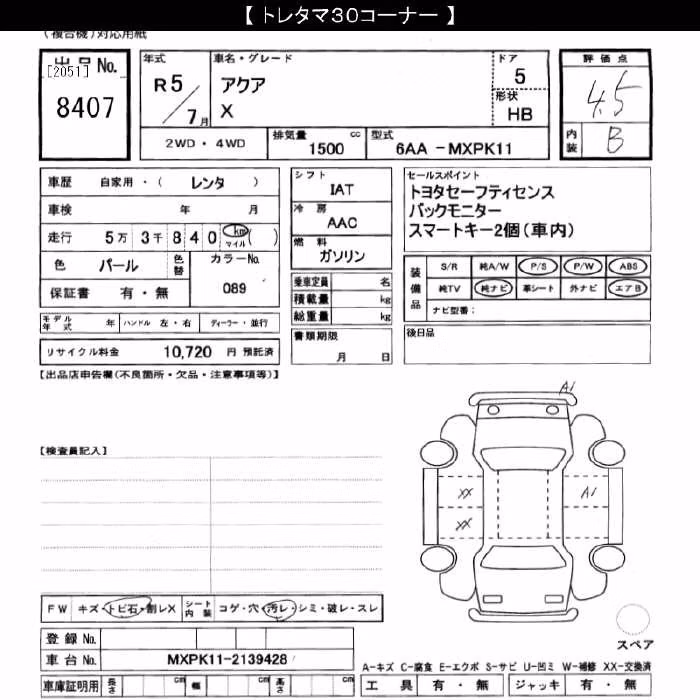 【 トレタマ30コーナー 】
(複合機)対応用紙
出品No.
[2051]
8407
年式
R5/7月
車名・グレード
アクア
X
ドア
5
形状
HB
評価点
4.5
内装
B
2WD・4WD
排気量 1500 cc
型式 6AA -MXPK11
車歴 自家用・( レンタ )
車検 年 月
走行 5万 3千 8 4 0 km マイル ( )
色 パール 色替
カラーNo.
089
保証書 有・無
シフト
IAT
冷房
AAC
燃料
ガソリン
乗車定員 名
積載量 kg
総重量 kg
セールスポイント
トヨタセーフティセンス
バックモニター
スマートキー2個(車内)
装備品
S/R 純A/W P/S P/W ABS
純TV 純ナビ 革シート 外ナビ エアB
ナビ型番:
モデル年式 年 ハンドル 左・右 ディーラー・並行
書類期限
月 日
後日品
リサイクル料金 10,720 円 預託済
【出品店申告欄(不良箇所・欠品・注意事項等)】
A1
【検査員記入】
XX A1
XX
FW キズ・トビ石・割レX シート内装 コゲ・穴・汚レ・シミ・破レ・スレ
登録 No.
車台 No. MXPK11-2139428
スペア
A-キズ C-腐食 E-エクボ S-サビ U-凹ミ W-補修 XX-交換済
車庫証明用 長さ cm 幅 cm 高さ cm
工具 有・無 ジャッキ 有・無